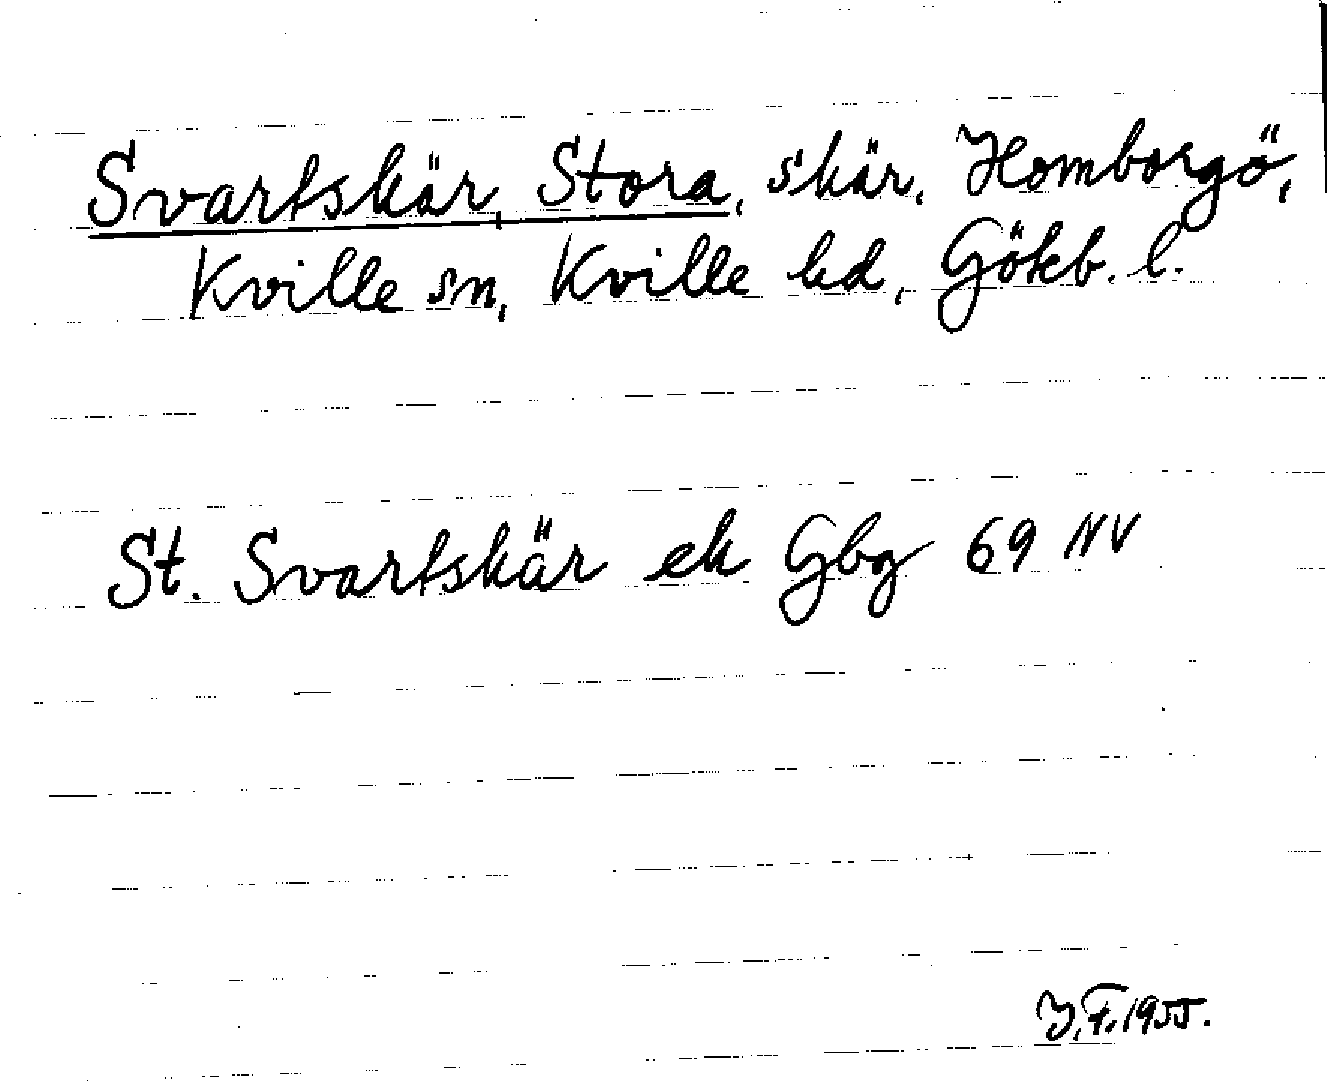 Svartskär, Stora, skär, Homborgö,
Kville sn, Kville hd, Göteb. l.
St. Svartskär ek Gbg 69 NV
Y.F. 1955.